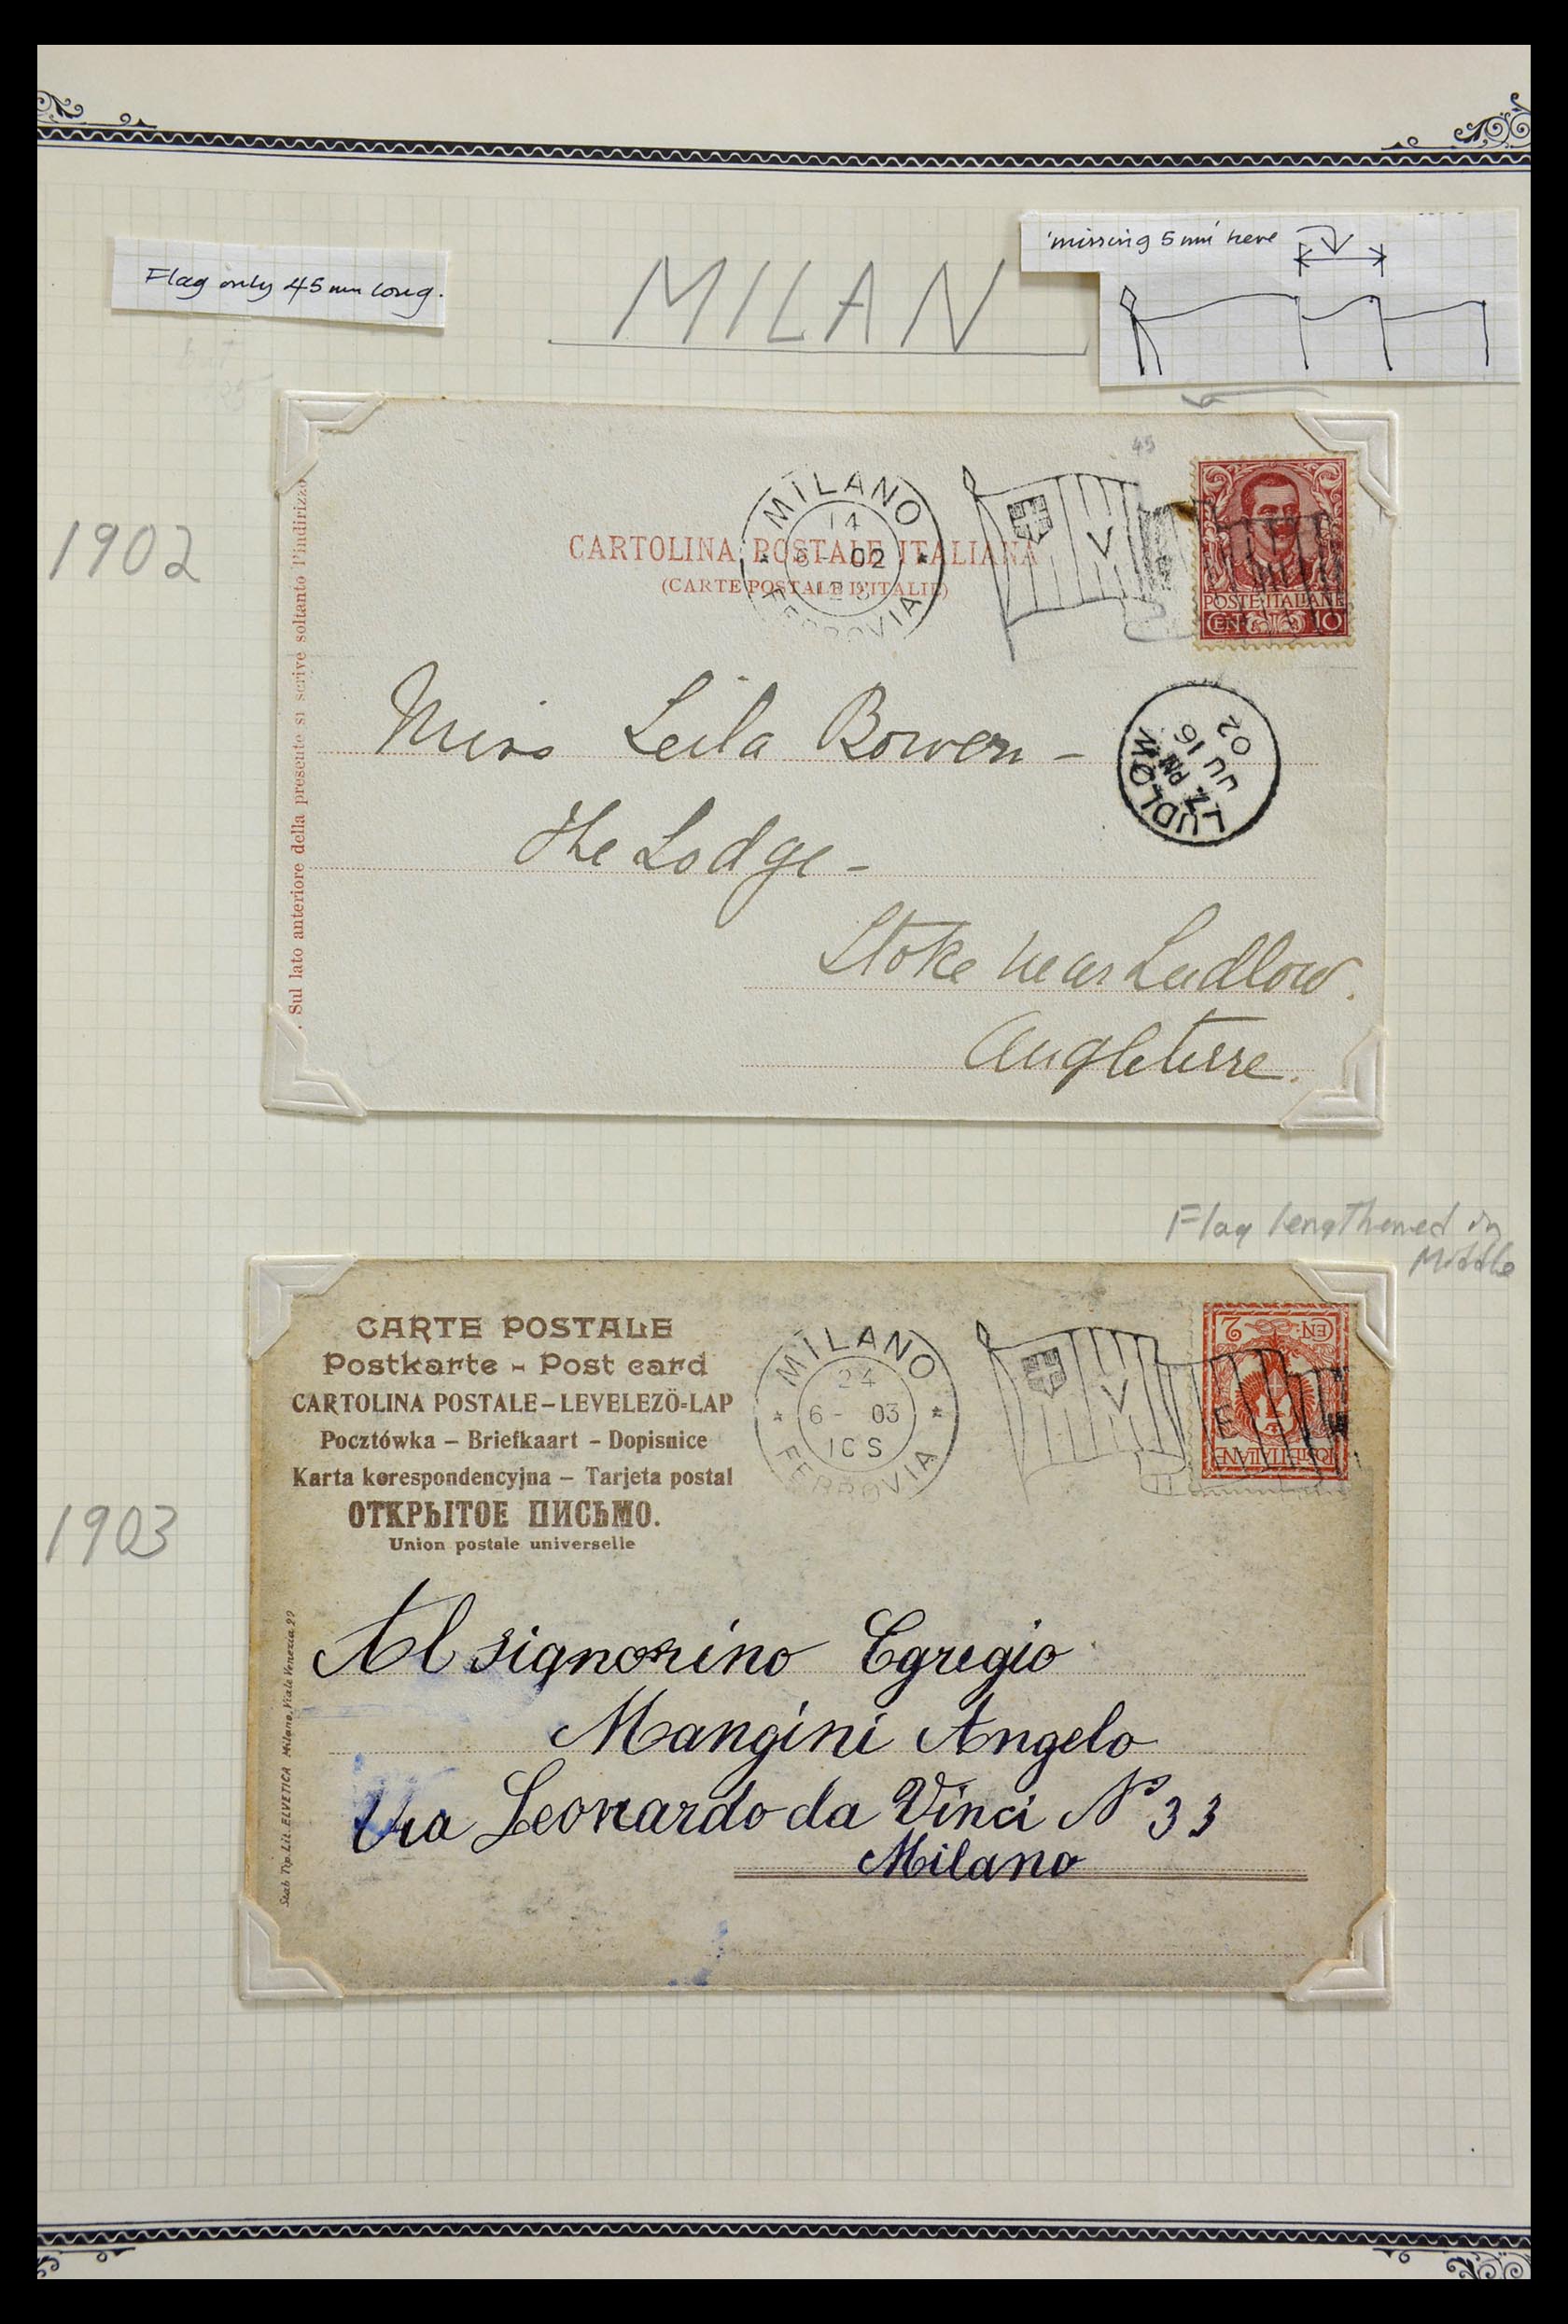 Flag only 45 mm long.
MILAN
'missing 5 mm' here
45
1902
MILANO
14
6 - 02
FERROVIA
V
CARTOLINA POSTALE ITALIANA
(CARTE POSTALE D'ITALIE)
POSTE ITALIANE
CEN. 10
. Sul lato anteriore della presente si scrive soltanto l'indirizzo
LUDLOW
7 PM
JU 16
02
Miss Leila Bowen -
The Lodge -
Stoke near Ludlow.
Angleterre.
Flag lengthened in
Middle
1903
CARTE POSTALE
Postkarte - Post card
CARTOLINA POSTALE – LEVELEZÖ-LAP
Pocztówka – Briefkaart – Dopisnice
Karta korespondencyjna – Tarjeta postal
ОТКРЫТОЕ ПИСЬМО.
Union postale universelle
MILANO
24
6 - 03
10 S
FERROVIA
V
E
CEN. 2
POSTE ITALIANE
Stab. Tip. Lit. ELVETICA Milano, Viale Venezia 29
Al signorino Egregio
Mangini Angelo
Via Leonardo da Vinci Nº 33
Milano